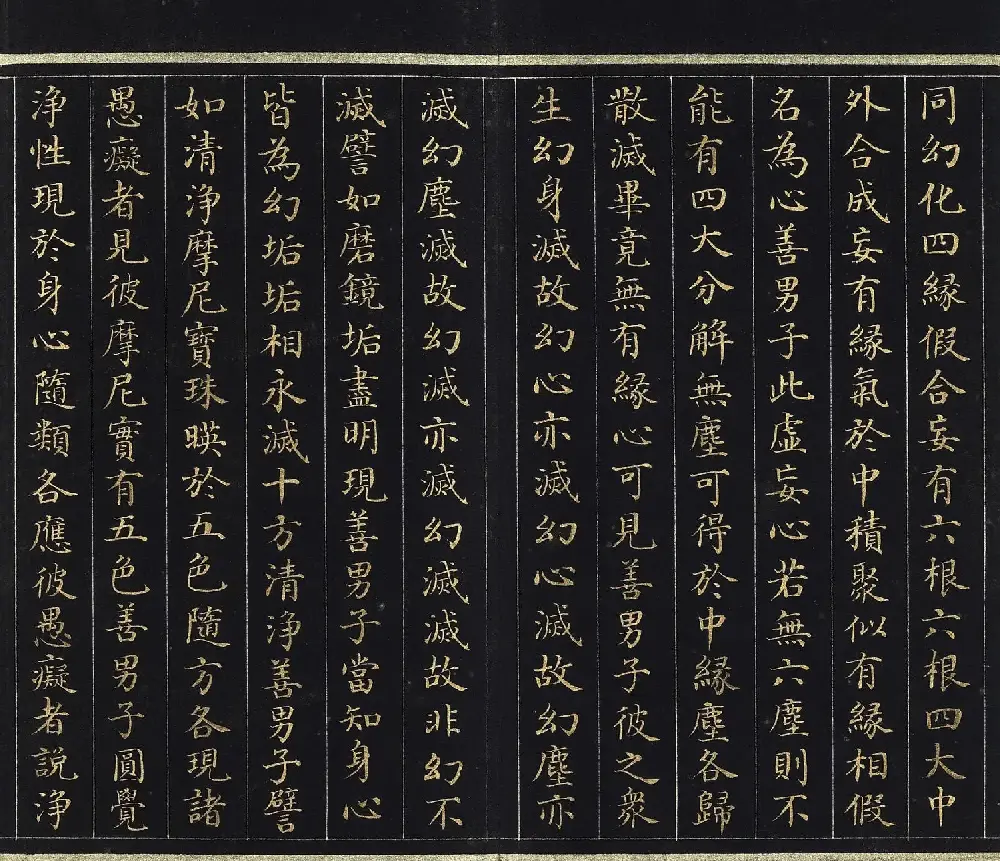 同幻化四緣假合妄有六根六根四大中
外合成妄有緣氣於中積聚似有緣相假
名為心善男子此虛妄心若無六塵則不
能有四大分解無塵可得於中緣塵各歸
散滅畢竟無有緣心可見善男子彼之衆
生幻身滅故幻心亦滅幻心滅故幻塵亦
滅幻塵滅故幻滅亦滅幻滅滅故非幻不
滅譬如磨鏡垢盡明現善男子當知身心
皆為幻垢垢相永滅十方清淨善男子譬
如清淨摩尼寶珠暎於五色隨方各現諸
愚癡者見彼摩尼實有五色善男子圓覺
淨性現於身心隨類各應彼愚癡者說淨